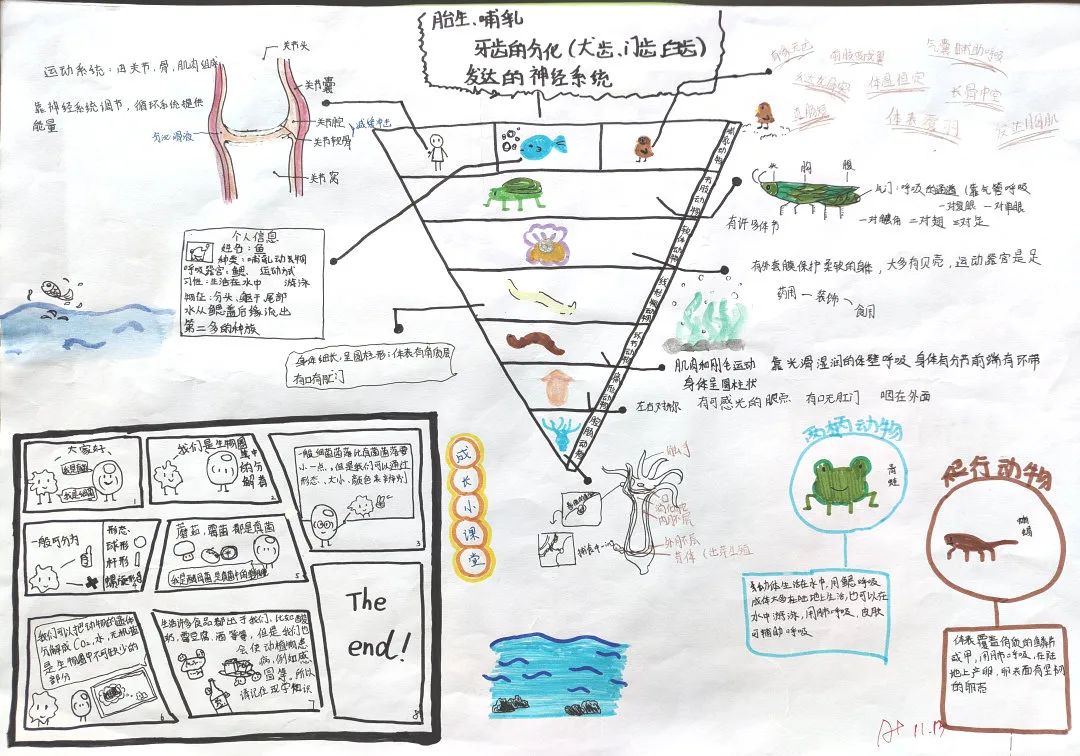 胎生、哺乳
牙齿的分化(犬齿、门齿臼齿)
发达的神经系统
运动系统:由关节,骨,肌肉组成
靠神经系统调节,循环系统提供
能量
关节头
关节囊
关节腔
减缓冲击
关节软骨
关节窝
气囊辅助呼吸
体温恒定
长骨中空
体表覆羽
发达胸肌
头
胸
腹
气门:呼吸的通道(靠气管呼吸
一对复眼
一对触角 二对翅 三对足
有许多体节
个人信息
姓名:鱼
种类:哺乳动物
呼吸器官:鳃 运动方式
习性:生活在水中 游泳
特征:分头、躯干尾部
水从鳃盖后缘流出
第二多的种族
哺乳动物
节肢动物
软体动物
线形动物
环节动物
扁形动物
腔肠动物
有外套膜保护柔软的身体,大多有贝壳,运动器官是足
药用—装饰—食用
身体细长,呈圆柱形;体表有角质层
有口有肛门
肌肉和刚毛运动 靠光滑湿润的体壁呼吸 身体有分节前端有环带
身体呈圆柱状
左右对称 有可感光的眼点 有口无肛门 咽在外面
触手
外胚层
芽体(出芽生殖
成
长
小
课
堂
两栖动物
青蛙
幼体生活在水中,用鳃呼吸
成体大多在陆地上生活,也可以在
水中游泳,用肺呼吸,皮肤
可辅助呼吸
爬行动物
体表覆盖角质的鳞片
或甲,用肺呼吸,在陆
地上产卵,卵表面有坚韧
的卵壳
大家好、
我是真菌
我是细菌
1
我们是生物圈
中的分解者
2
一般细菌菌落比真菌菌落要
小一点,但是我们可以通过
形态、大小、颜色来辨别
3
一般可分为
形态
球形
杆形
螺旋形
蘑菇,霉菌都是真菌
5
我们可以把动植物的遗体
分解成CO₂,水,无机盐
是生物圈中不可缺少的
部分
6
生活许多食品都出于我们,比如酸
奶,霉豆腐,酒等等,但是我们也
会使动植物患
病,例如感
冒等,所以
请记住现学知识
7
The
end!
8
A+ 11.13